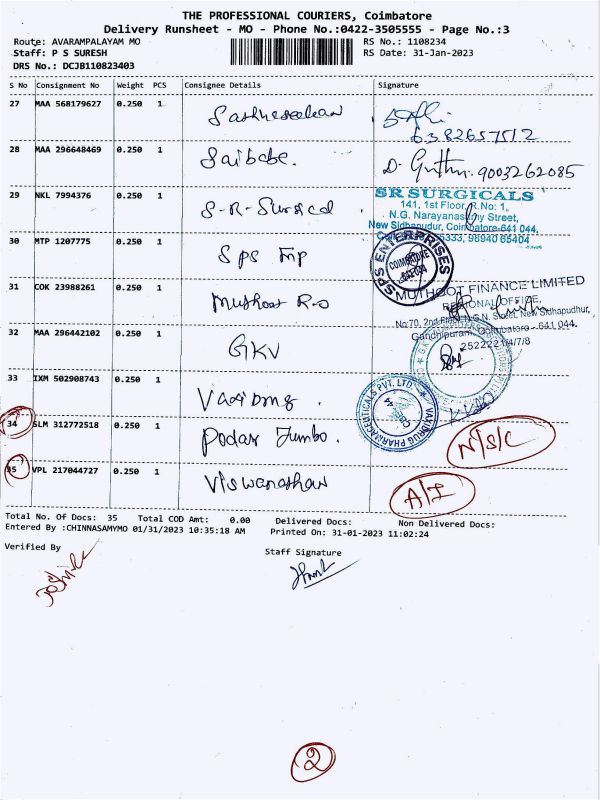 THE PROFESSIONAL COURIERS, Coimbatore
Delivery Runsheet - MO - Phone No.:0422-3505555 - Page No.:3
Route: AVARAMPALAYAM MO RS No.: 1108234
Staff: P S SURESH RS Date: 31-Jan-2023
DRS No.: DCJB110823403
S No Consignment No Weight PCS Consignee Details Signature
27 MAA 568179627 0.250 1
6382657512
28 MAA 296648469 0.250 1 Saibaba. D. 9003262085
29 NKL 7994376 0.250 1 S-R-Surgical
SR SURGICALS
141, 1st Floor, R.No: 1,
N.G. Narayanasamy Street,
New Sidhapudur, Coimbatore-641 044.
5333, 98940 05404
30 MTP 1207775 0.250 1 SPS
SPS ENTERPRISES
COIMBATORE
31 COK 23988261 0.250 1 Muthoot R.O
MUTHOOT FINANCE LIMITED
REGIONAL OFFICE,
No:70, 2nd Floor, N.G.N. Street, New Sidhapudhur,
Gandhipuram, Coimbatore - 641 044.
2522221/4/7/8
32 MAA 296442102 0.250 1 GKV
33 IXM 502908743 0.250 1
VAXIDRUG PHARMACEUTICALS PVT. LTD.
34 SLM 312772518 0.250 1 Podar Jumbo. N/S/C
35 VPL 217044727 0.250 1 Viswanathan A/I
Total No. Of Docs: 35 Total COD Amt: 0.00 Delivered Docs: Non Delivered Docs:
Entered By :CHINNASAMYMO 01/31/2023 10:35:18 AM Printed On: 31-01-2023 11:02:24
Verified By Staff Signature
2